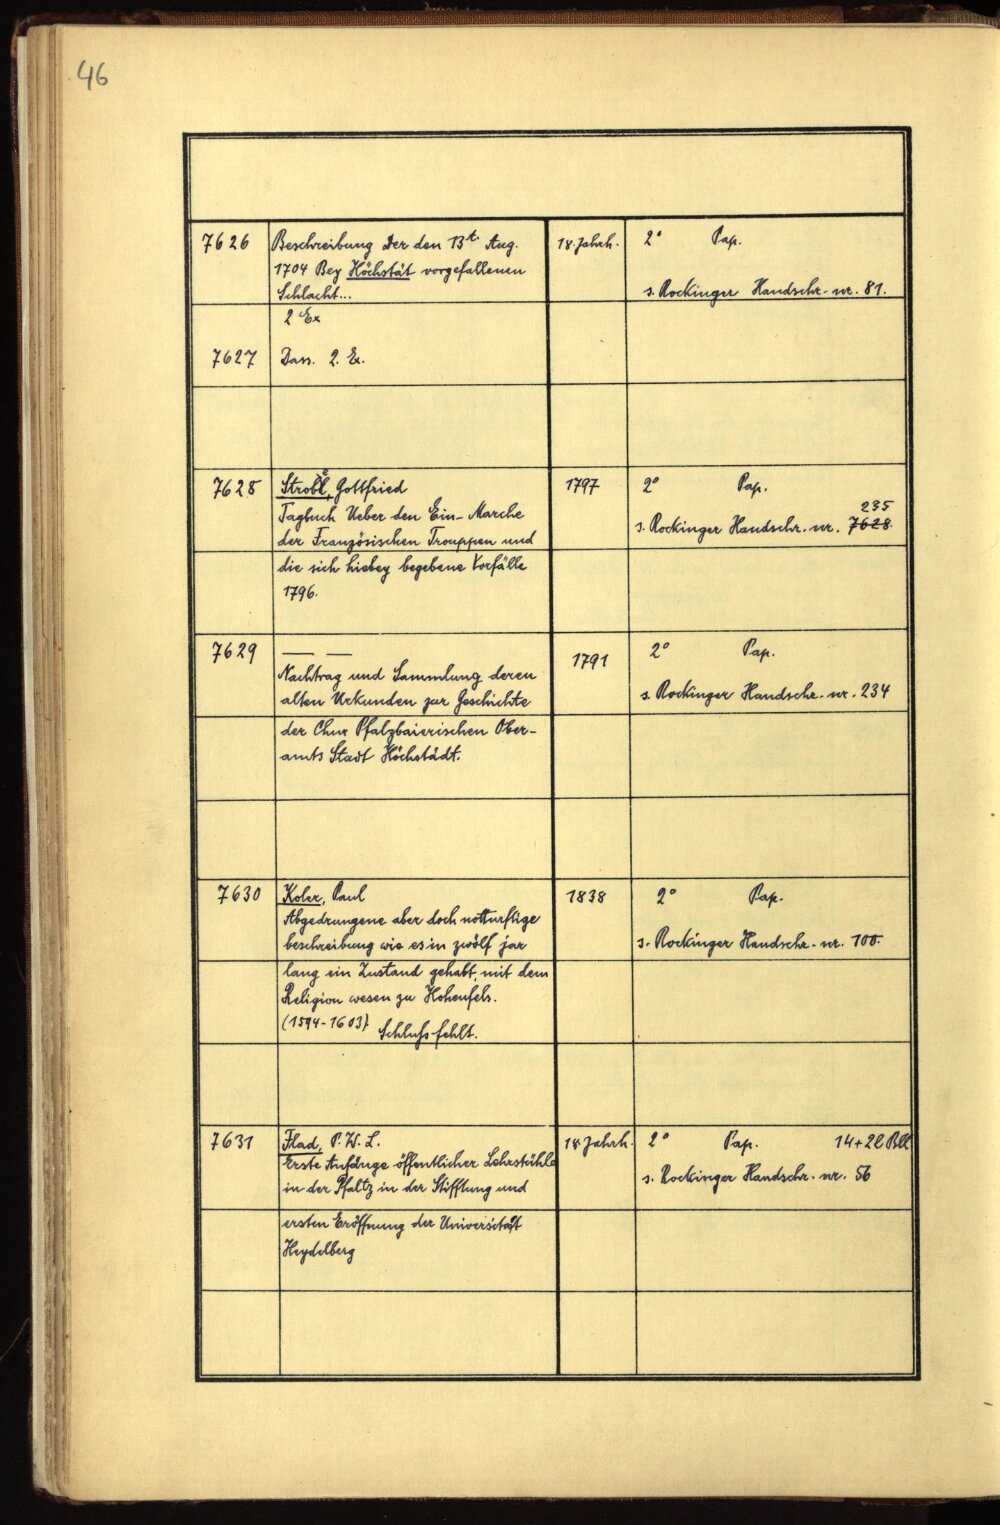 46
7626 Beschreibung Der den 13t. Aug. 18. Jahrh. 2° Pap.
1704 Bey Höchstät vorgefallenen
Schlacht... s. Rockinger Handschr.-nr. 81.
2 Ex
7627 Dass. 2. Ex.
7628 Strobl, Gottfried 1797 2° Pap.
Tagbuch Ueber den Ein-Marche 235
der Französischen Trouppen und s. Rockinger Handschr.-nr. 7628.
die sich hiebey begebene Vorfälle
1796.
7629 — — 1791 2° Pap.
Nachtrag und Sammlung deren
alten Urkunden zur Geschichte s. Rockinger Handschr.-nr. 234
der Chur Pfalzbaierischen Ober-
amts Stadt Höchstädt.
7630 Koler, Paul 1838 2° Pap.
Abgedrungene aber doch notturftige
beschreibung wie es in zwölf jar s. Rockinger Handschr.-nr. 100.
lang ein Zustand gehabt mit dem
Religion wesen zu Hohenfels.
(1594-1603) Schluss fehlt.
7631 Flad, P. W. L. 18. Jahrh. 2° Pap. 14+22 Bll
Erste Anfänge öffentlicher Lehrstühle
in der Pfaltz in der Stifftung und s. Rockinger Handschr.-nr. 56
ersten Eröffnung der Universität
Heydelberg